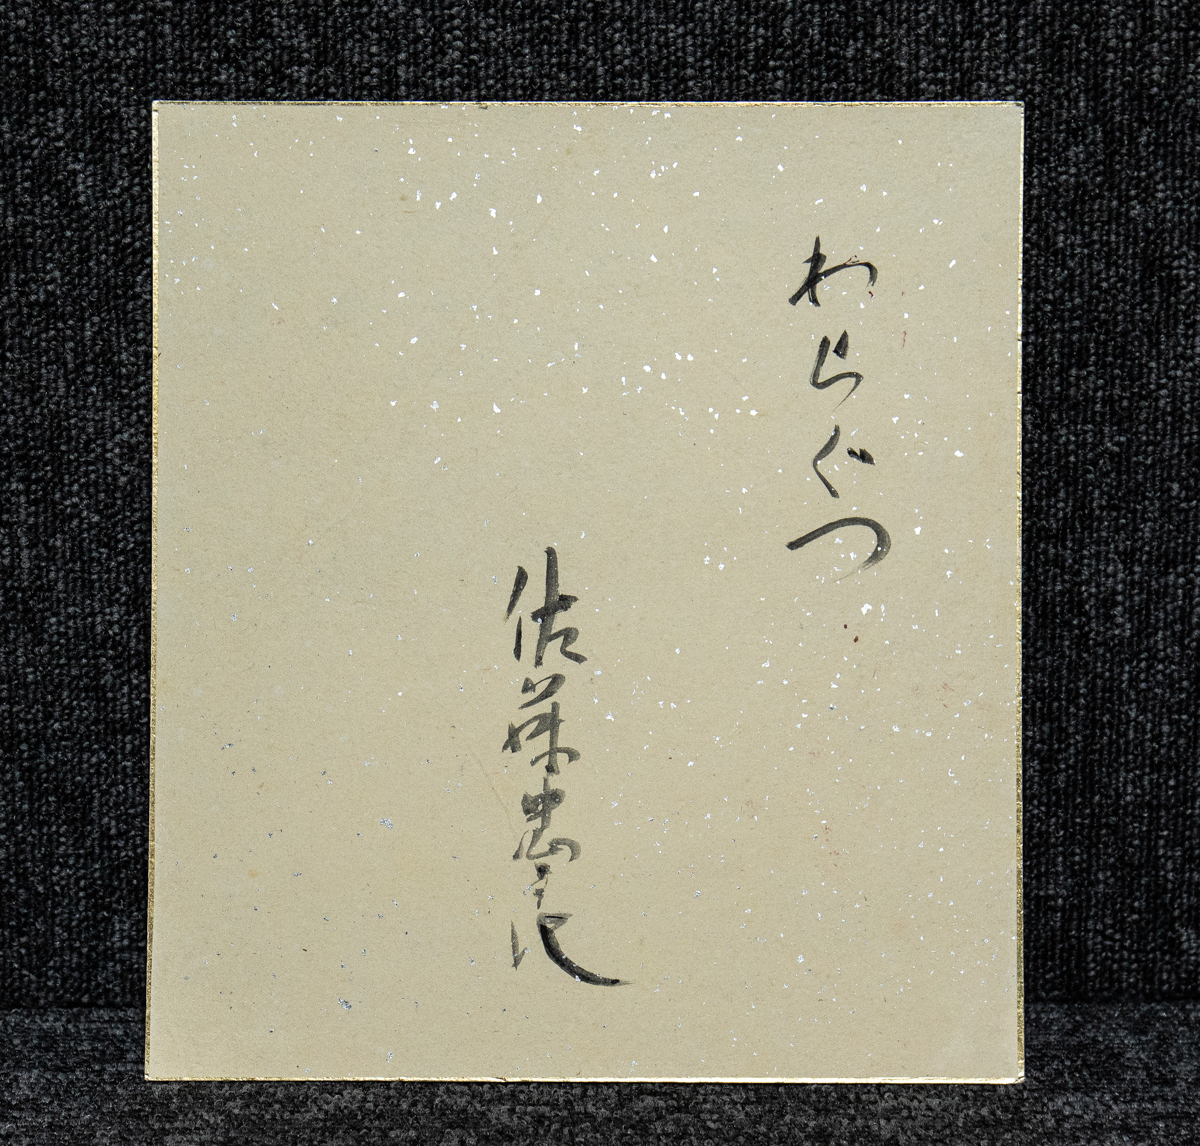 わらぐつ
佐藤忠良